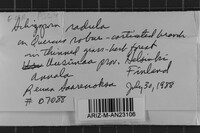 Schizopora radula
on Quercus robur - corticated branch
in thinned grass-herb forest
Uusimaa prov. Helsinki
Finland
Reima Saarenoksa July 30, 1988
# 07088
ARIZ-M-AN23106